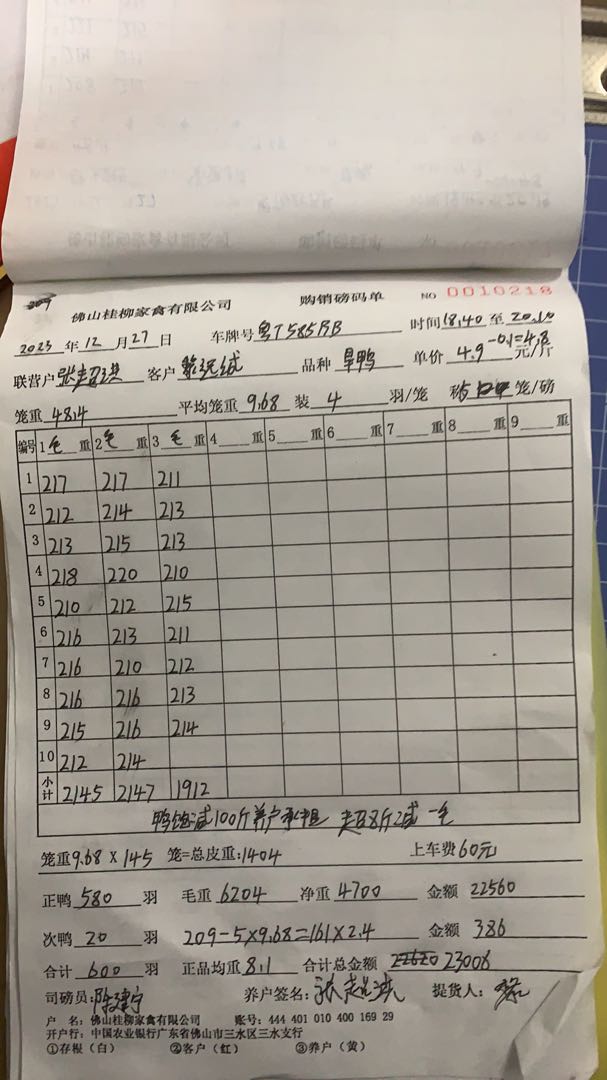 209
佛山桂柳家禽有限公司 购销磅码单 NO 0010218
2023年12月27日 车牌号粤T585RB 时间18.40至20.10
联营户 客户 品种旱鸭 单价4.9-0.1=4.8元/斤
笼重48.4 平均笼重9.68装4羽/笼 笼/磅
编号 1毛重 2毛重 3毛重 4重 5重 6重 7重 8重 9重
1 217 217 211
2 212 214 213
3 213 215 213
4 218 220 210
5 210 212 215
6 216 213 211
7 216 210 212
8 216 216 213
9 215 216 214
10 212 214
小计 2145 2147 1912
鸭饱减100斤养户承担 超8斤减一毛
笼重9.68×145笼=总皮重:1404 上车费60元
正鸭580羽 毛重6204 净重4700 金额22560
次鸭20羽 209-5×9.68=161×2.4 金额386
合计600羽 正品均重8.1 合计总金额 22620 23006
司磅员: 养户签名: 提货人:
户 名:佛山桂柳家禽有限公司 账号:444 401 010 400 169 29
开户行:中国农业银行广东省佛山市三水区三水支行
①存根(白) ②客户(红) ③养户(黄)